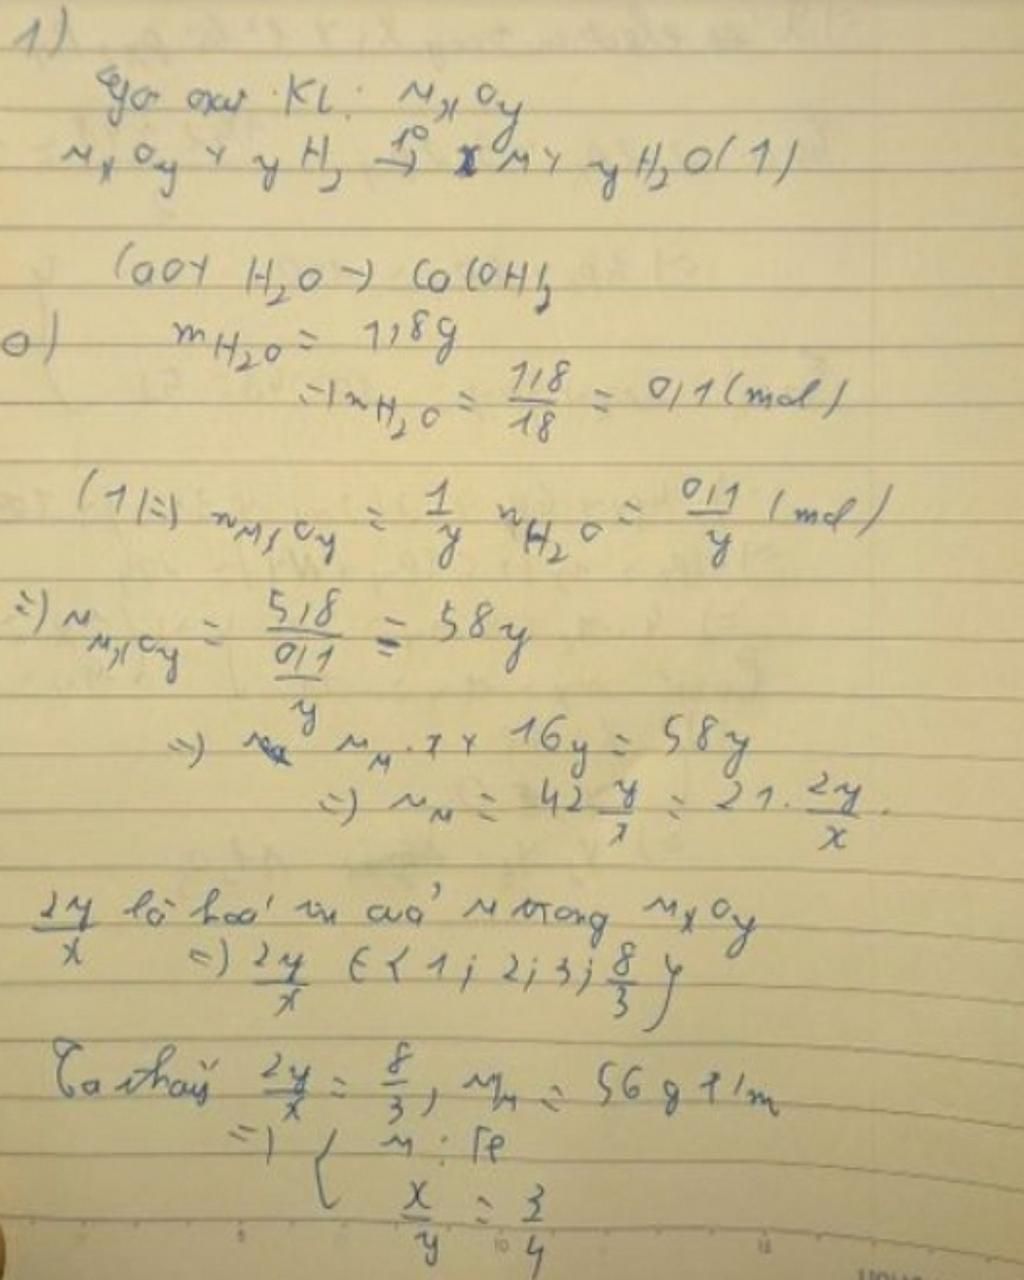 1)
Gọi oxit KL: MxOy
MxOy + yH2 t°→ xM + yH2O (1)
CaO + H2O → Ca(OH)2
a) mH2O = 1,8g
=> nH2O = 1,8/18 = 0,1 (mol)
(1) => nMxOy = 1/y nH2O = 0,1/y (mol)
=> MMxOy = 5,8/(0,1/y) = 58y
=> MM.x + 16y = 58y
=> MM = 42 y/x = 21. 2y/x.
2y/x là hoá trị của M trong MxOy
=> 2y/x ∈ { 1; 2; 3; 8/3 }
Ta thấy 2y/x = 8/3, MM = 56 g t/m
=> { M: Fe
x/y = 3/4
5 10 15